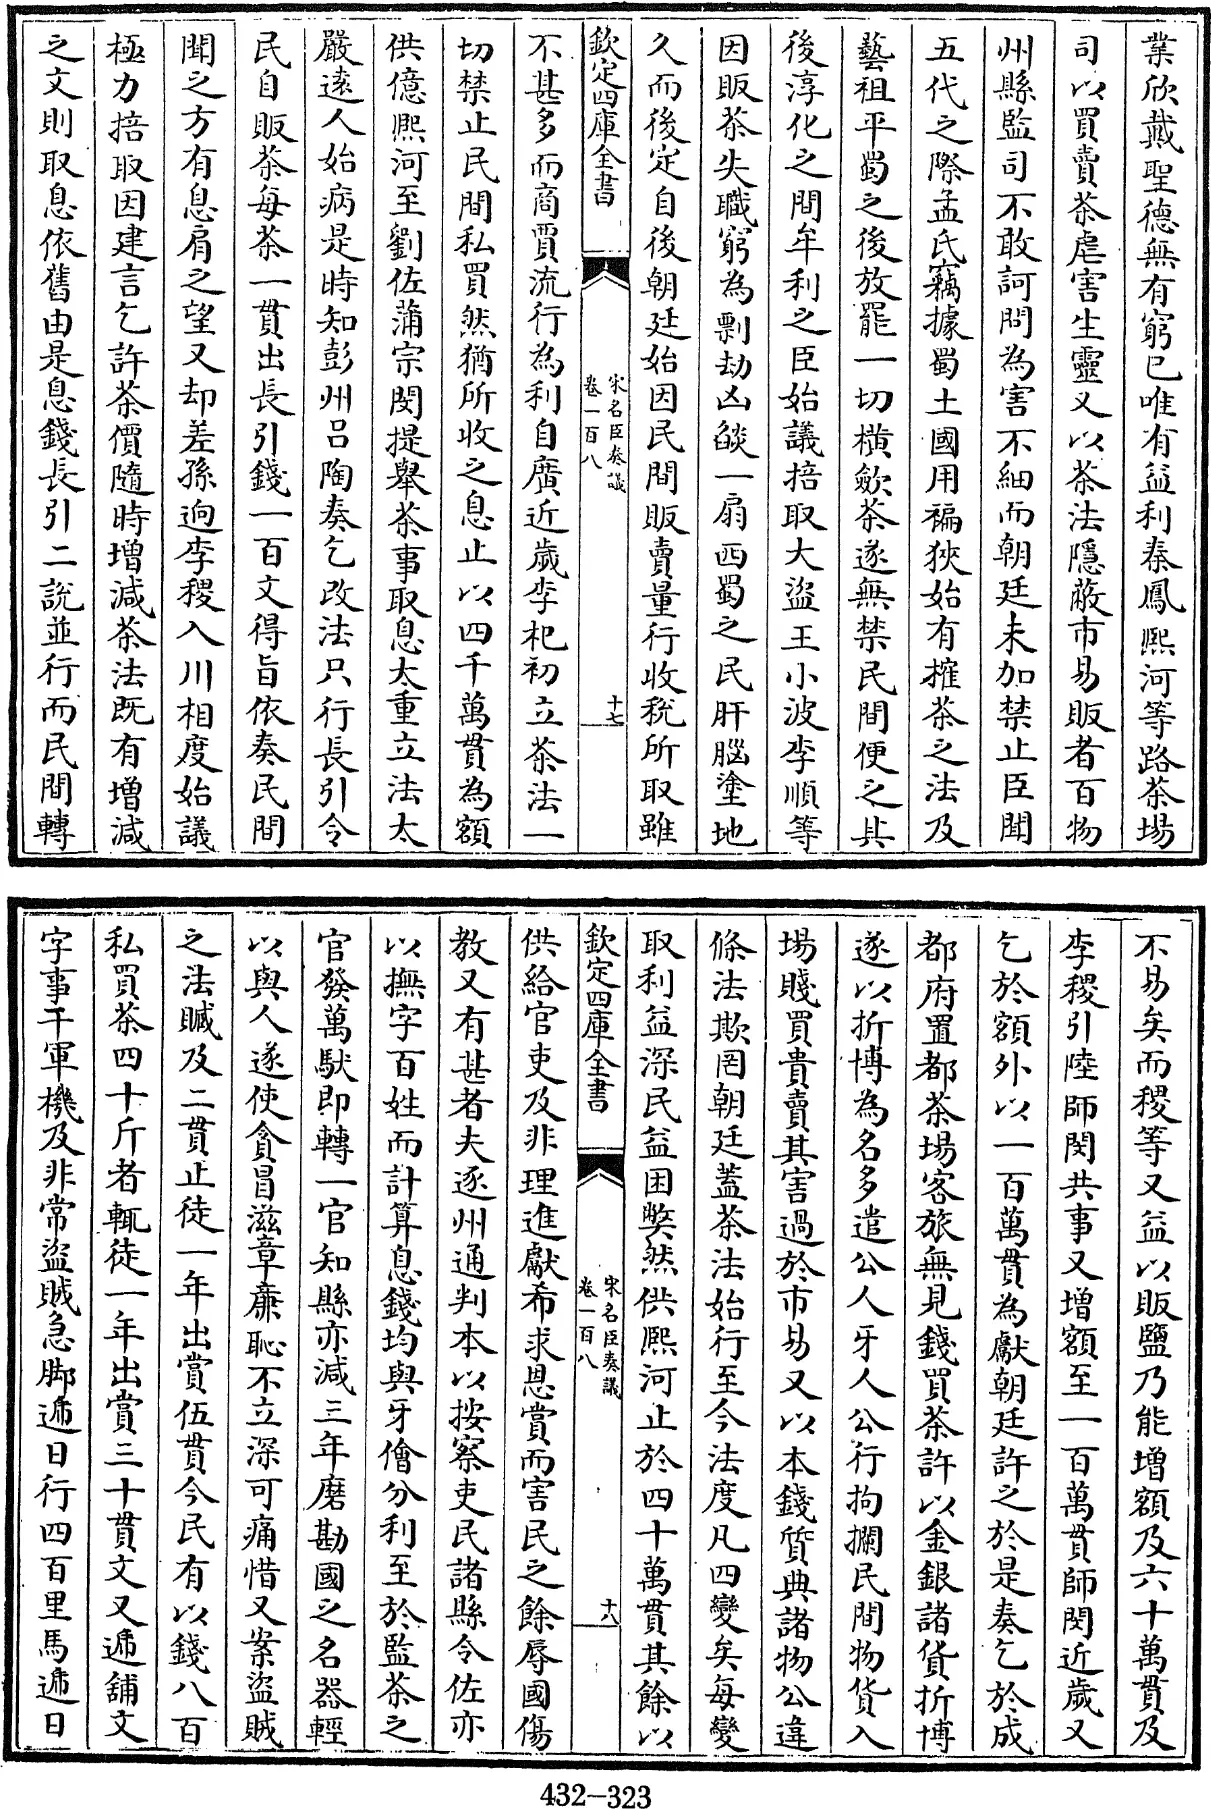 業欣戴聖德無有窮已唯有益利秦鳳熈河等路茶場
司以買賣茶虐害生靈又以茶法隠蔽市易販者百物
州縣監司不敢訶問為害不細而朝廷未加禁止臣聞
五代之際孟氏竊據蜀土國用褊狹始有搉茶之法及
藝祖平蜀之後放罷一切橫斂茶遂無禁民間便之其
後淳化之間牟利之臣始議掊取大盜王小波李順等
因販茶失職窮為剽劫凶燄一扇西蜀之民肝腦塗地
久而後定自後朝廷始因民間販賣量行收稅所取雖
欽定四庫全書
宋名臣奏議
卷一百八
十七
不甚多而商賈流行為利自廣近歲李杞初立茶法一
切禁止民間私買然猶所收之息止以四千萬貫為額
供億熈河至劉佐蒲宗閔提舉茶事取息太重立法太
嚴逺人始病是時知彭州呂陶奏乞改法只行長引令
民自販茶每茶一貫出長引錢一百文得旨依奏民間
聞之方有息肩之望又却差孫逈李稷入川相度始議
極力掊取因建言乞許茶價隨時增減茶法既有增減
之文則取息依舊由是息錢長引二說並行而民間轉
不易矣而稷等又益以販鹽乃能增額及六十萬貫及
李稷引陸師閔共事又增額至一百萬貫師閔近歲又
乞於額外以一百萬貫為獻朝廷許之於是奏乞於成
都府置都茶場客旅無見錢買茶許以金銀諸貨折博
遂以折博為名多遣公人牙人公行拘攔民間物貨入
場賤買貴賣其害過於市易又以本錢質典諸物公違
條法欺罔朝廷蓋茶法始行至今法度凡四變矣每變
取利益深民益困弊然供熈河止於四十萬貫其餘以
欽定四庫全書
宋名臣奏議
卷一百八
十八
供給官吏及非理進獻希求恩賞而害民之餘辱國傷
教又有甚者夫逐州通判本以按察吏民諸縣令佐亦
以撫字百姓而計算息錢均與牙儈分利至於監茶之
官發萬馱即轉一官知縣亦減三年磨勘國之名器輕
以與人遂使貪冒滋章廉恥不立深可痛惜又案盜賊
之法贓及二貫止徒一年出賞伍貫今民有以錢八百
私買茶四十斤者輒徒一年出賞三十貫文又遞舖文
字事干軍機及非常盜賊急脚遞日行四百里馬遞日
432-323